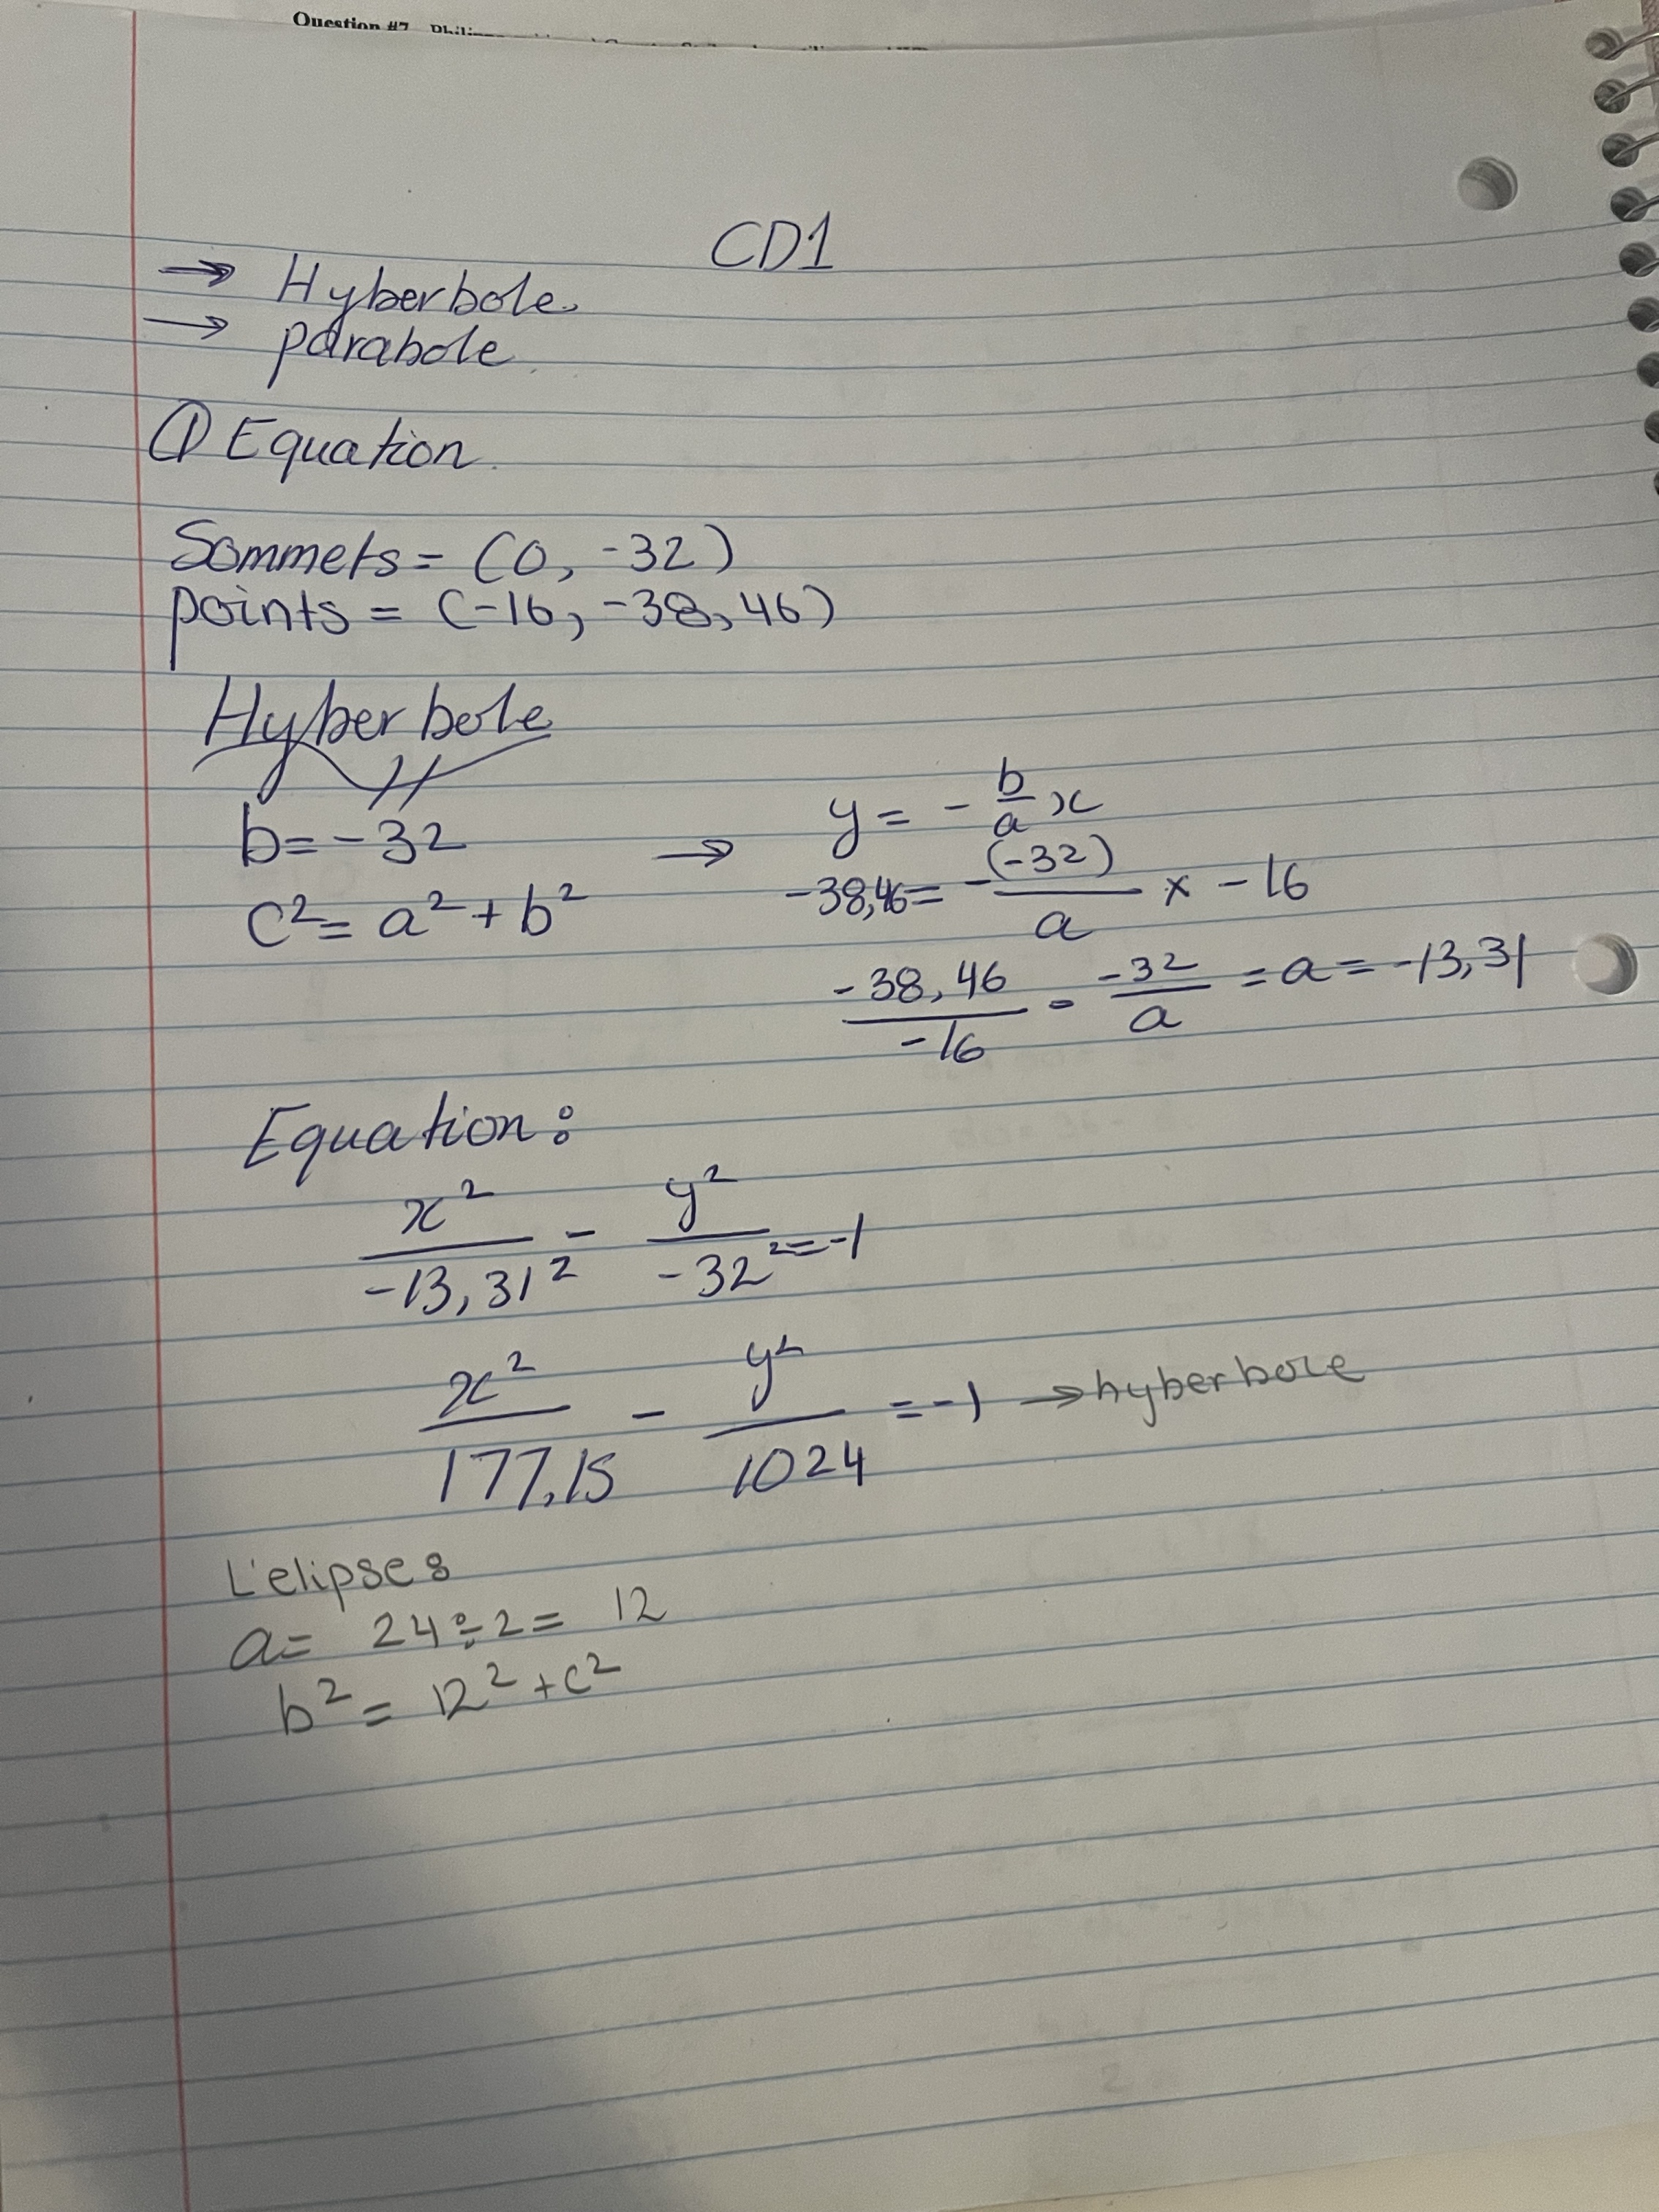 Question #7
CD1
→ Hyberbole
→ parabole
① Equation
Sommets = (0, -32)
points = (-16, -38,46)
Hyberbole
b = -32 → y = - b/a x
c² = a² + b² -38,46 = - (-32)/a × -16
-38,46/-16 = -32/a = a = -13,31
Equation :
x²/-13,31² - y²/-32² = -1
x²/177,15 - y²/1024 = -1 → hyberbole
L'elipse :
a = 24 ÷ 2 = 12
b² = 12² + c²